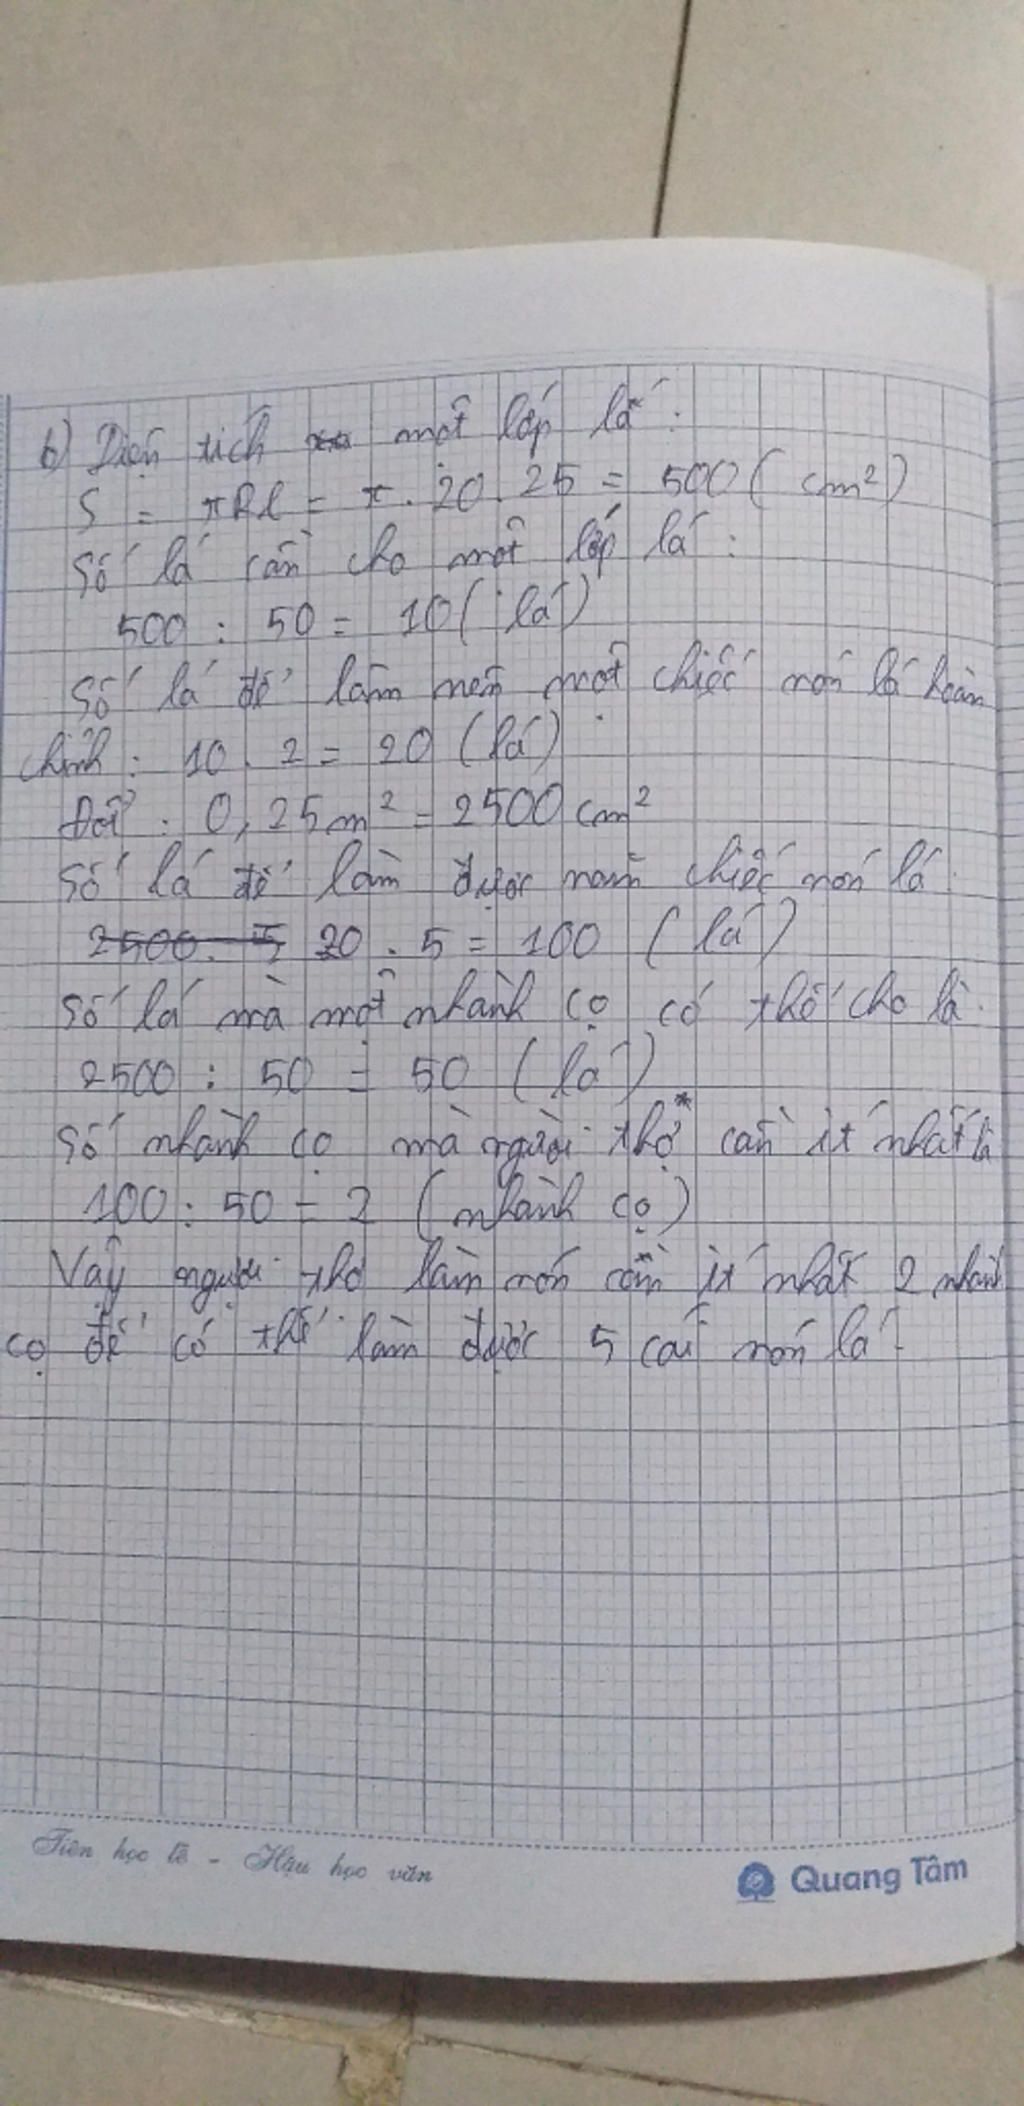 b) Diện tích một lớp lá :
S = πRl = π . 20 . 25 = 500 ( cm²)
Số lá cần cho một lớp lá :
500 : 50 = 10 ( lá )
Số lá để làm nên một chiếc nón lá hoàn
chỉnh : 10 . 2 = 20 (lá)
Đổi : 0,25m² = 2500 cm²
Số lá để làm được năm chiếc nón lá :
2500 . 5 20 . 5 = 100 ( lá )
Số lá mà một nhành cọ có thể cho là :
2500 : 50 = 50 ( lá )
Số nhành cọ mà người thợ cần ít nhất là
100 : 50 = 2 ( nhành cọ )
Vậy người thợ làm nón cần ít nhất 2 nhành
cọ để có thể làm được 5 cái nón lá .
Tiên học lễ - Hậu học văn
Quang Tâm